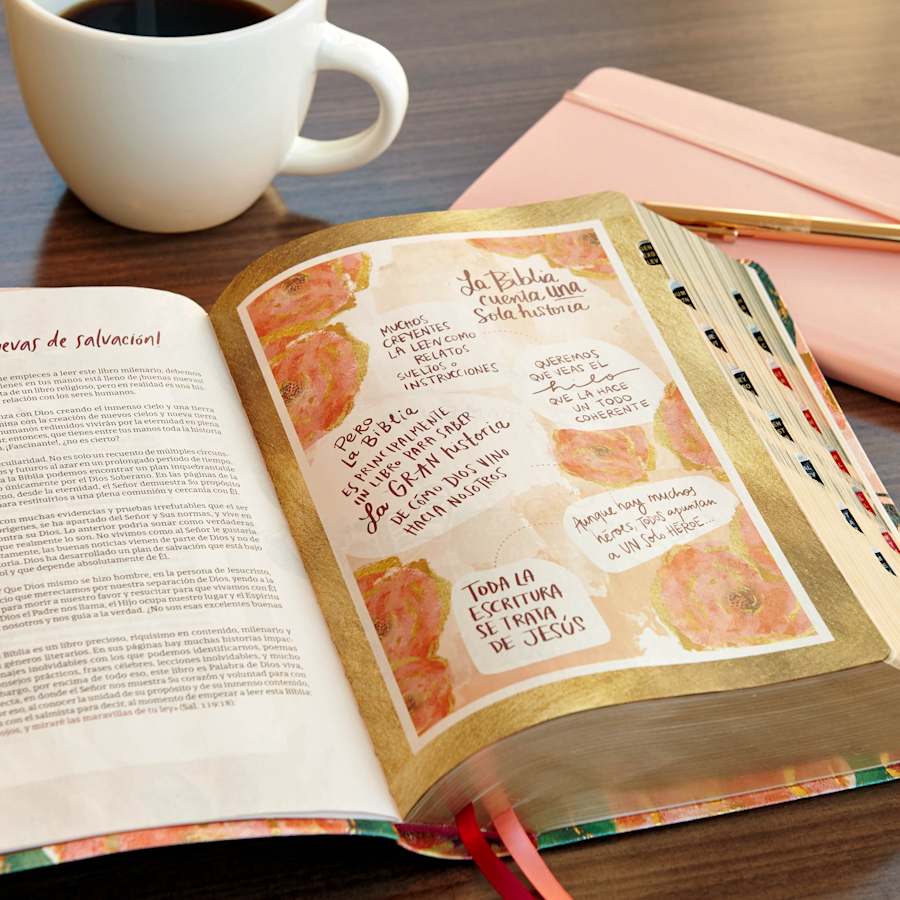 evas de salvación!
empieces a leer este libro milenario, debemos
tienes en tus manos está lleno de ¡buenas nuevas!
de un libro religioso, pero en realidad es una his
relación con los seres humanos.
nza con Dios creando el inmenso cielo y una tierra
mina con la creación de nuevos cielos y nueva tierra
humanos redimidos vivirán por la eternidad en plena
entonces, que tienes entre tus manos toda la historia
¡Fascinante!, ¿no es cierto?
eculiaridad. No es solo un recuento de múltiples circuns-
s y futuros al azar en un prolongado periodo de tiempo.
la Biblia podemos encontrar un plan inquebrantable
únicamente por el Dios Soberano. En las páginas de la
no, desde la eternidad, el Señor demuestra Su propósito
para restituirlos a una plena comunión y cercanía con Él.
con muchas evidencias y pruebas irrefutables que el ser
orígenes, se ha apartado del Señor y Sus normas, y vive en
contra su Dios. Lo anterior podría sonar como verdaderas
que realmente lo son. No vivimos como al Señor le gustaría
tamente, las buenas noticias vienen de parte de Dios y no de
toria. Dios ha desarrollado un plan de salvación que está bajo
ol y que depende absolutamente de Él.
Que Dios mismo se hizo hombre, en la persona de Jesucristo,
cio que merecíamos por nuestra separación de Dios, yendo a la
para morir a nuestro favor y resucitar para que vivamos con Él
Dios el Padre nos llama, el Hijo ocupa nuestro lugar y el Espíritu
nosotros y nos guía a la verdad. ¿No son esas excelentes buenas
Biblia es un libro precioso, riquísimo en contenido, milenario y
géneros literarios. En sus páginas hay muchas historias impac-
najes inolvidables con los que podemos identificarnos, poemas
nsejos prácticos, frases célebres, lecciones inolvidables, y mucho
bargo, por encima de todo eso, este libro es Palabra de Dios viva,
ecta, en donde el Señor nos muestra Su corazón y voluntad para con
or eso, al conocer la unidad de su propósito y de su inmenso contenido,
s con el salmista para decir, al momento de empezar a leer esta Biblia:
ojos, y miraré las maravillas de tu ley» (Sal. 119:18).
La Biblia
cuenta una
Sola historia
MUCHOS
CREYENTES
LA LEEN COMO
RELATOS
SUELTOS o
INSTRUCCIONES
QUEREMOS
QUE VEAS EL
hilo
QUE LA HACE
UN TODO
COHERENTE
PERO
LA BIBLIA
ES PRINCIPALMENTE
UN LIBRO PARA SABER
La GRAN historia
DE CÓMO DIOS VINO
HACIA NOSOTROS
Aunque hay muchos
héroes, TODOS apuntan
a UN Solo HÉROE...
TODA LA
ESCRITURA
SE TRATA
DE JESÚS